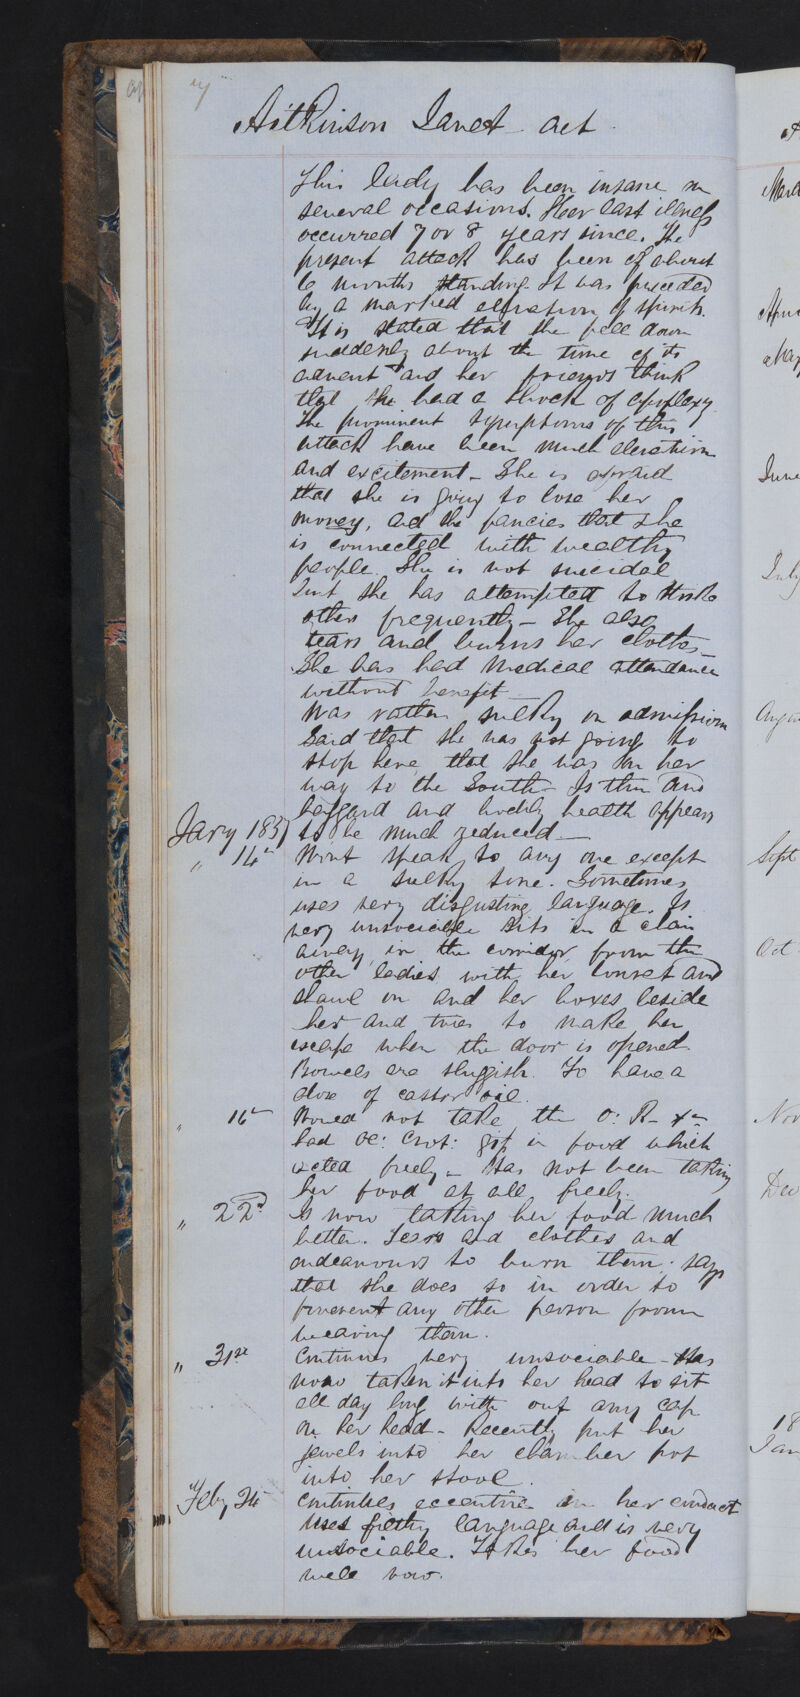 Aitkinson Janet aet
This lady has been insane on
several occasions. Her last illness
occurred 7 or 8 years since. The
present attack has been of about
6 months standing. It was preceded
by a marked elevation of spirits.
It is stated that she fell down
suddenly about the time of its
advent and her friends think
that she had a shock of apoplexy.
The prominent symptoms of this
attack have been much elevation
and excitement - She is afraid
that she is going to lose her
money, and she fancies that she
is connected with wealthy
people. She is not suicidal
but she has attempted to strike
others frequently - She also
tears and burns her clothes -
She has had medical attendance
without benefit -
Was rather sulky on admission
Said that she was not going to
stop here, that she was on her
way to the South - Is thin and
haggard and bodily health appears
Jany 1857 to be much reduced -
" 14th Wont speak to any one except
in a sulky tone. Sometimes
uses very disgusting language. Is
very unsociable Sits in a chair
away in the corridor from the
other ladies with her bonnet and
shawl on and her boxes beside
her and tries to make her
escape when the door is opened.
Bowels are sluggish. To have a
dose of castor oil.
" 16th Would not take the O: R -
had Ol: Crot: in food which
acted freely - Has not been taking
her food at all freely.
" 22d Is now taking her food much
better. Tears and clothes and
endeavours to burn them. says
that she does so in order to
prevent any other person from
wearing them.
" 31st Continues very unsociable - Has
now taken it into her head to sit
all day long with out any cap
on her head - Recently put her
jewels into her chamber pot
into her stool.
Feby 24 Continues eccentric in her conduct
uses filthy language and is very
unsociable. Takes her food
well now.
March
June
July
Sept
Oct
Nov
Dec
18
Jan